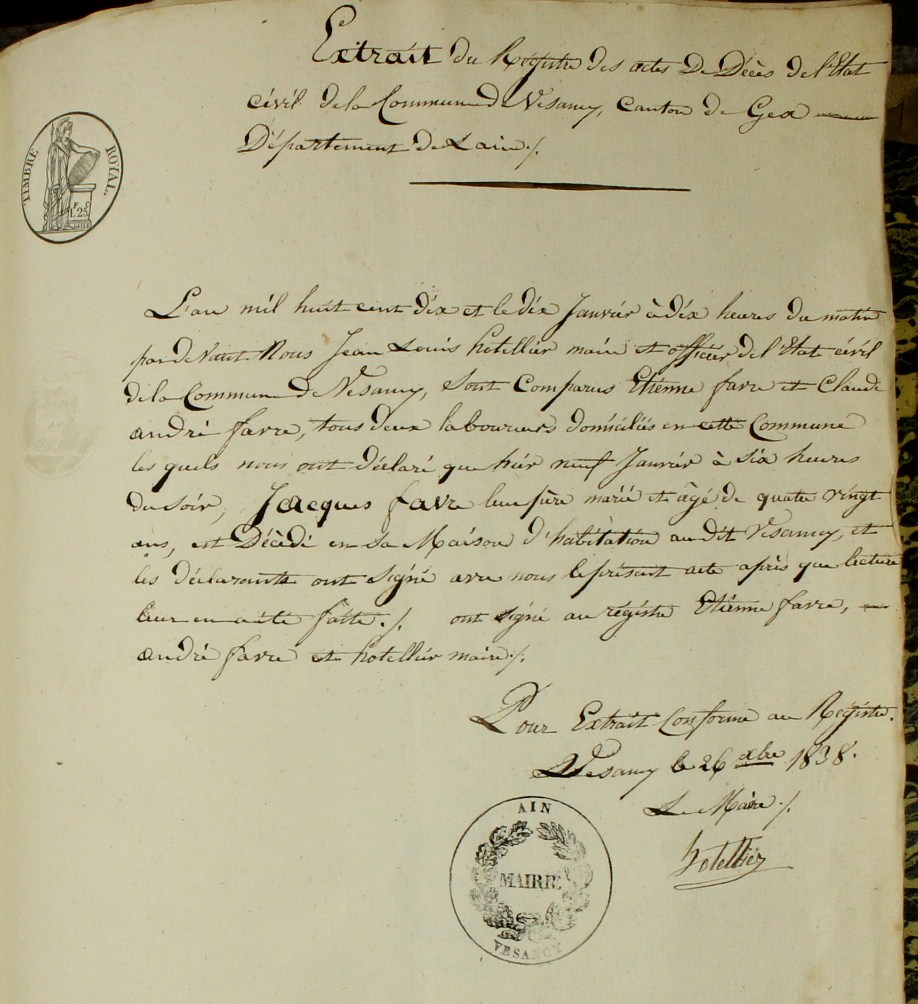 Extrait du Registre des actes De Décès de l'Etat
civil de la Commune de Vesancy, canton de Gex
Département de Lain ./.
TIMBRE ROYAL
1.F 25.C
L'an mil huit cent dix et le dix Janvier à dix heures du matin
par devant Nous Jean Louis hotellier maire et officier de l'Etat civil
de la Commune de Vesancy, sont Comparus Etienne favre et Claude
andré favre, tous deux laboureurs domiciliés en cette Commune
les quels nous ont déclaré que hier neuf Janvier à six heures
du soir, Jacques favre leur père marié et âgé de quatre vingt
ans, est Décédé en sa Maison d'habitation au dit Vesancy, et
les déclarants ont signé avec nous le présent acte après que lecture
leur en a été faitte ./. ont signé au régistre Etienne favre,
andré favre et hotellier maire ./.
Pour Extrait Conforme au Registre.
Vesancy le 26 xbre 1838.
Le Maire ./.
hotellier
AIN
MAIRIE
VESANCY